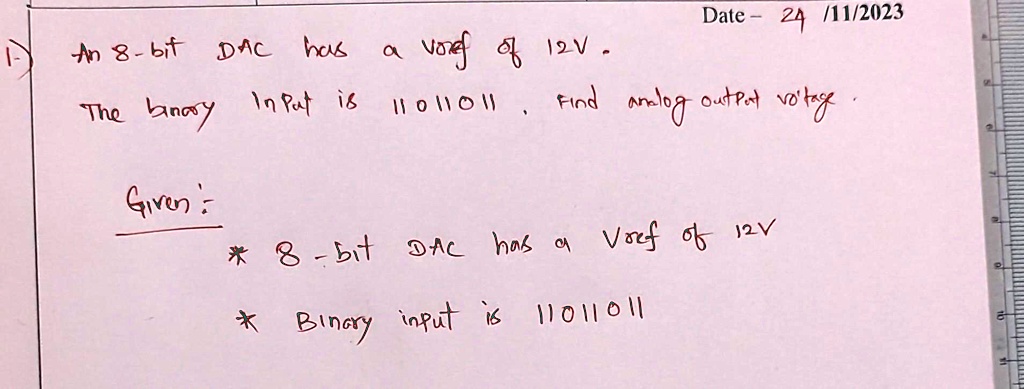 Date – 24 /11/2023
1.) An 8-bit DAC has a Vref of 12V.
The binary Input is 11011011. Find analog output voltage.
Given :-
* 8-bit DAC has a Vref of 12V
* Binary input is 11011011